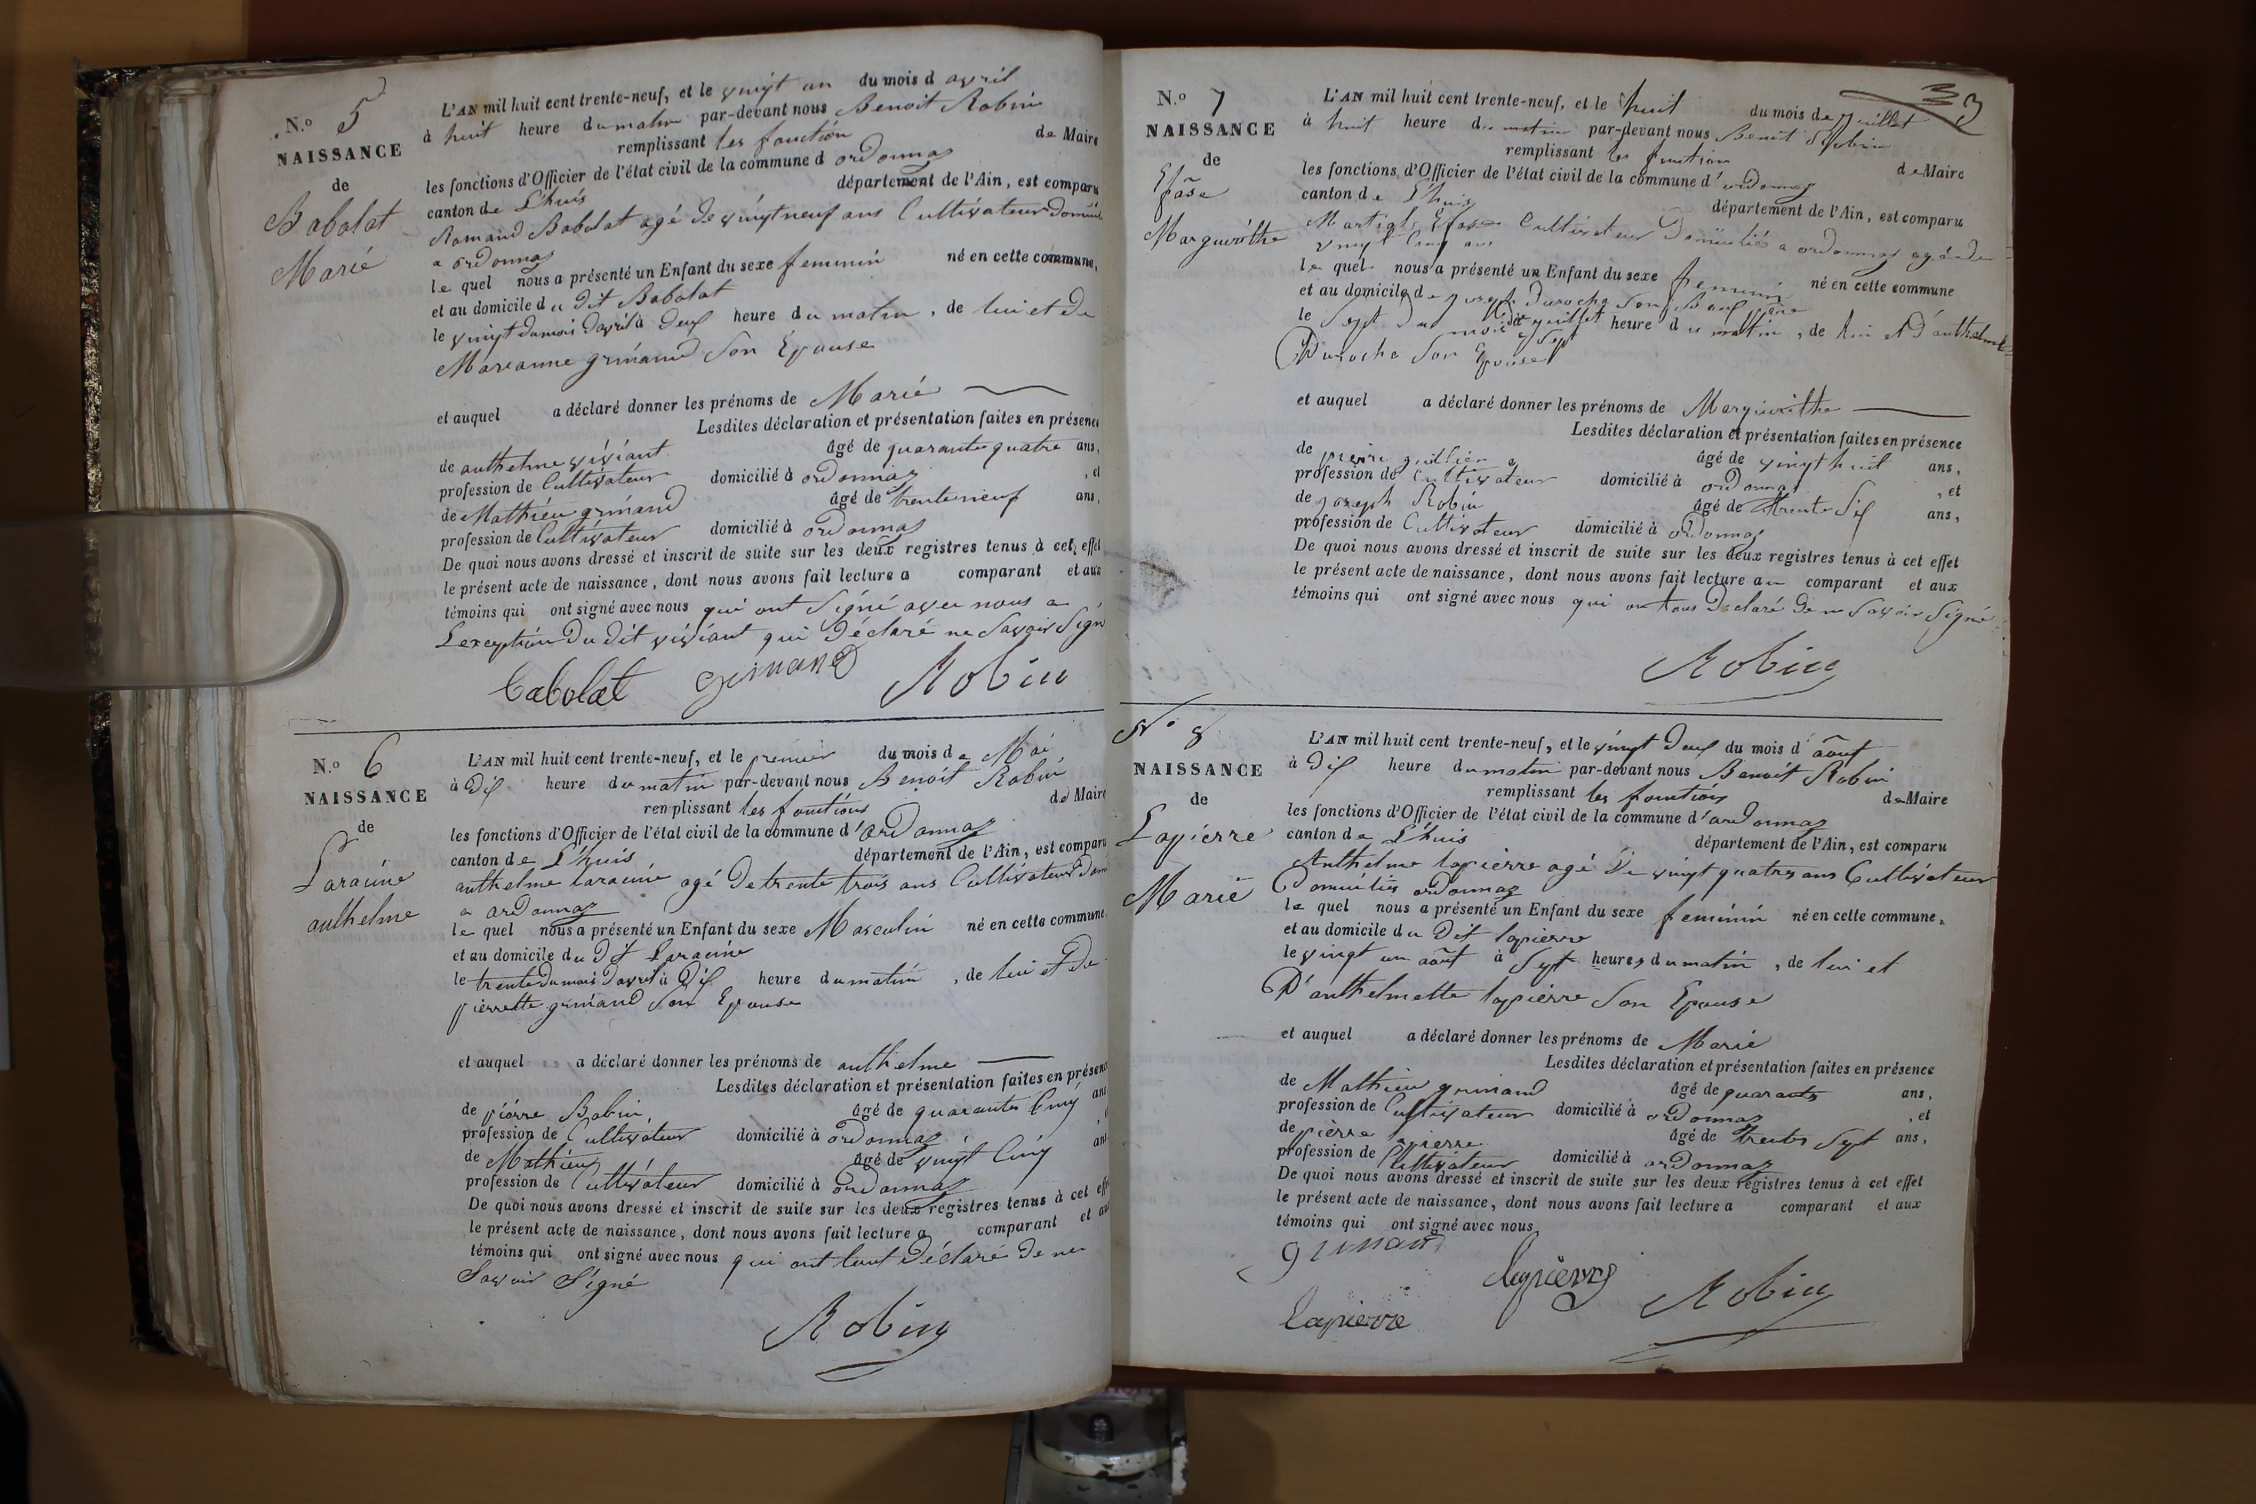 N.o 5
NAISSANCE
de
Babolat
Marie
L'AN mil huit cent trente-neuf, et le vingt un du mois d avril
à huit heure du matin par-devant nous Benoit Robin
remplissant les fonction de Maire
les fonctions d'Officier de l'état civil de la commune d ordonnaz
canton de L'huis département de l'Ain, est comparu
Romand Babolat agé de vingt neuf ans Cultivateur Domicilié
a ordonnaz
le quel nous a présenté un Enfant du sexe feminin né en cette commune,
et au domicile du dit Babolat
le vingt du mois d'avril à deux heure du matin, de lui et de
Marianne grinand Son Epouse
et auquel a déclaré donner les prénoms de Marie
Lesdites déclaration et présentation faites en présence
de anthelme viviant âgé de quarante quatre ans,
profession de Cultivateur domicilié à ordonnaz, et
de Mathieu grinand âgé de trente neuf ans,
profession de Cultivateur domicilié à ordonnaz
De quoi nous avons dressé et inscrit de suite sur les deux registres tenus à cet effet
le présent acte de naissance, dont nous avons fait lecture a comparant et aux
témoins qui ont signé avec nous qui ont Signé avec nous a
L'exception Du dit viviant qui Déclaré ne Savoir Signé
babolat grinand Robin
N.o 6
NAISSANCE
de
Laracine
anthelme
L'AN mil huit cent trente-neuf, et le premier du mois de Mai
à Dix heure du matin par-devant nous Benoit Robin
remplissant les fonctions de Maire
les fonctions d'Officier de l'état civil de la commune d'ordonnaz
canton de L'huis département de l'Ain, est comparu
anthelme laracine agé De trente trois ans Cultivateur Dom
a ordonnaz
le quel nous a présenté un Enfant du sexe Masculin né en cette commune,
et au domicile du Dit Laracine
le trente du mois d'avril à Dix heure du matin, de lui et De
pierrette grinand Son Epouse
et auquel a déclaré donner les prénoms de anthelme
Lesdites déclaration et présentation faites en présence
de pierre Babin, âgé de quarante Cinq ans
profession de Cultivateur domicilié à ordonnaz
de Mathieu âgé de vingt Cinq ans
profession de Cultivateur domicilié à ordonnaz
De quoi nous avons dressé et inscrit de suite sur les deux registres tenus à cet effet
le présent acte de naissance, dont nous avons fait lecture a comparant et aux
témoins qui ont signé avec nous qui ont tout Déclaré De ne
Savoir Signé
Robin
33
N.o 7
NAISSANCE
de
Marguerithe
L'AN mil huit cent trente-neuf, et le huit du mois de juillet
à huit heure du matin par-devant nous Benoit Robin
remplissant les fonction de Maire
les fonctions d'Officier de l'état civil de la commune d'ordonnaz
canton de L'huis département de l'Ain, est comparu
Martial Cultivateur Domicilié a ordonnaz agé de
vingt Cinq ans
le quel nous a présenté un Enfant du sexe feminin né en cette commune
et au domicile de joseph Duroche Son Beauf père
le Sept du mois de juillet à Sept heure du matin, de lui et D'anthelmette
Duroche Son Epouse
et auquel a déclaré donner les prénoms de Marguerithe
Lesdites déclaration et présentation faites en présence
de pierre âgé de vingt huit ans,
profession de Cultivateur domicilié à ordonnaz, et
de joseph Robin âgé de trente Six ans,
profession de Cultivateur domicilié à ordonnaz
De quoi nous avons dressé et inscrit de suite sur les deux registres tenus à cet effet
le présent acte de naissance, dont nous avons fait lecture au comparant et aux
témoins qui ont signé avec nous qui on tous Déclaré De ne Savoir Signé
Robin
N.o 8
NAISSANCE
de
Lapierre
Marie
L'AN mil huit cent trente-neuf, et le vingt Deux du mois d'août
à Dix heure du matin par-devant nous Benoit Robin
remplissant les fonctions de Maire
les fonctions d'Officier de l'état civil de la commune d'ordonnaz
canton de L'huis département de l'Ain, est comparu
Anthelme lapierre agé De vingt quatres ans Cultivateur
Domiciliés ordonnaz
le quel nous a présenté un Enfant du sexe feminin né en cette commune,
et au domicile du Dit lapierre
le vingt un août à Sept heures du matin, de lui et
D'anthelmette lapierre Son Epouse
et auquel a déclaré donner les prénoms de Marie
Lesdites déclaration et présentation faites en présence
de Mathieu grinand âgé de quarante ans,
profession de Cultivateur domicilié à ordonnaz, et
de pierre lapierre âgé de trente Sept ans,
profession de Cultivateur domicilié à ordonnaz
De quoi nous avons dressé et inscrit de suite sur les deux registres tenus à cet effet
le présent acte de naissance, dont nous avons fait lecture a comparant et aux
témoins qui ont signé avec nous,
grinand
lapierre
Robin
lapierre